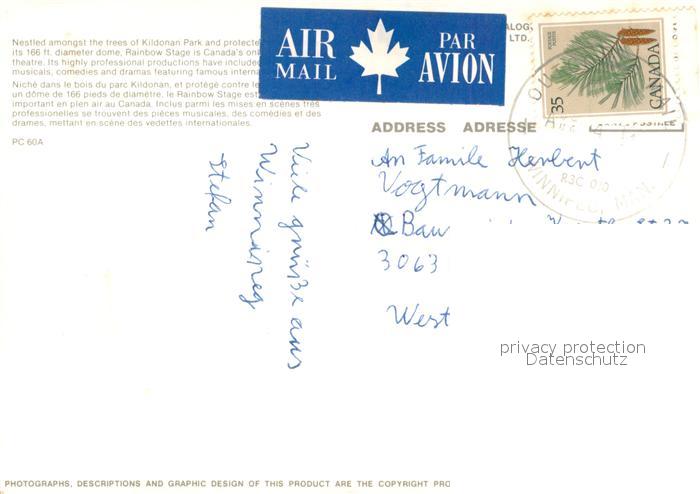 Nestled amongst the trees of Kildonan Park and protecte
its 166 ft. diameter dome, Rainbow Stage is Canada's onl
theatre. Its highly professional productions have included
musicals, comedies and dramas featuring famous interna
Niché dans le bois du parc Kildonan, et protégé contre le
un dôme de 166 pieds de diamètre, le Rainbow Stage est
important en plein air au Canada. Inclus parmi les mises en scènes très
professionelles se trouvent des pièces musicales, des comédies et des
drames, mettant en scène des vedettes internationales.
PC 60A
AIR MAIL
PAR AVION
LTD.
35
CANADA
WINNIPEG, MAN.
R3C 0J0
ADDRESS ADRESSE
An Familie Herbert
Vogtmann
Bau
3063
West
Viele grüße aus
Winnipeg
Stefan
privacy protection
Datenschutz
PHOTOGRAPHS, DESCRIPTIONS AND GRAPHIC DESIGN OF THIS PRODUCT ARE THE COPYRIGHT PRO